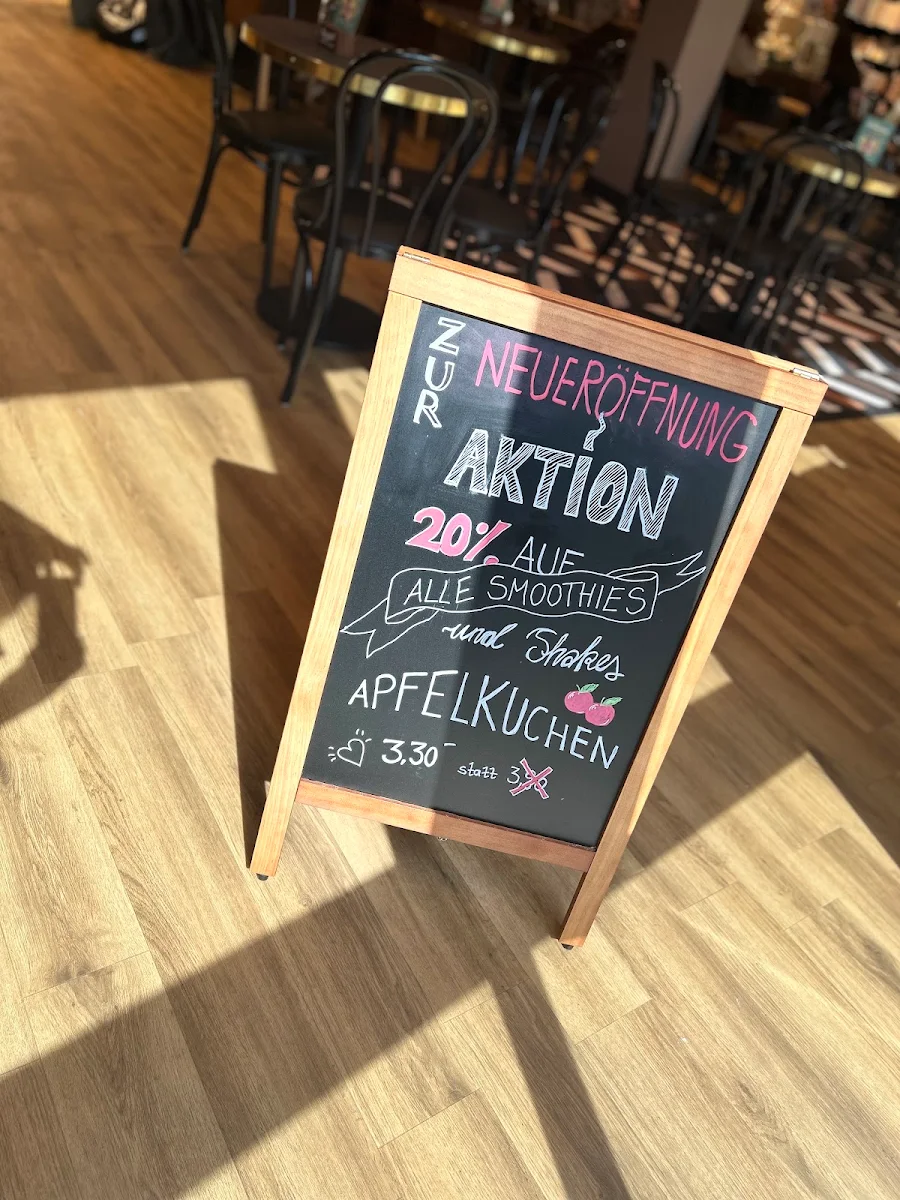 ZUR
NEUERÖFFNUNG
AKTION
20% AUF
ALLE SMOOTHIES
und Shakes
APFELKUCHEN
3,30
statt